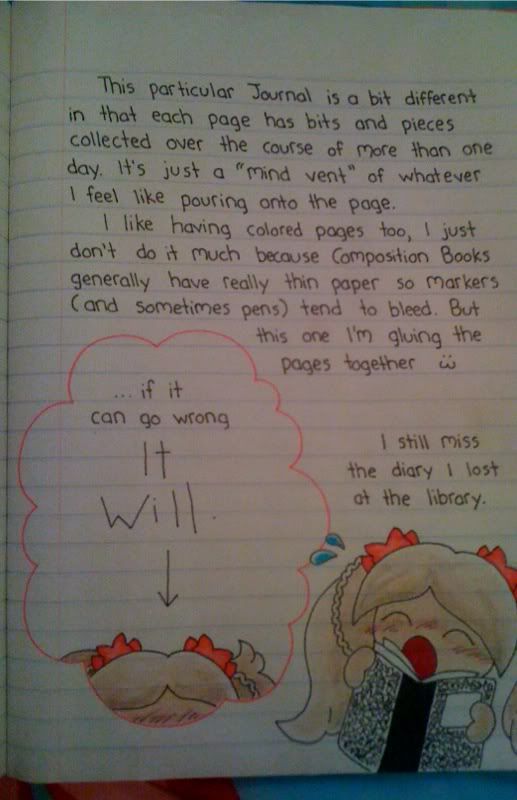 This particular Journal is a bit different
in that each page has bits and pieces
collected over the course of more than one
day. It's just a "mind vent" of whatever
I feel like pouring onto the page.
I like having colored pages too, I just
don't do it much because Composition Books
generally have really thin paper so markers
(and sometimes pens) tend to bleed. But
this one I'm gluing the
pages together
... if it
can go wrong
It
Will.
I still miss
the diary I lost
at the library.